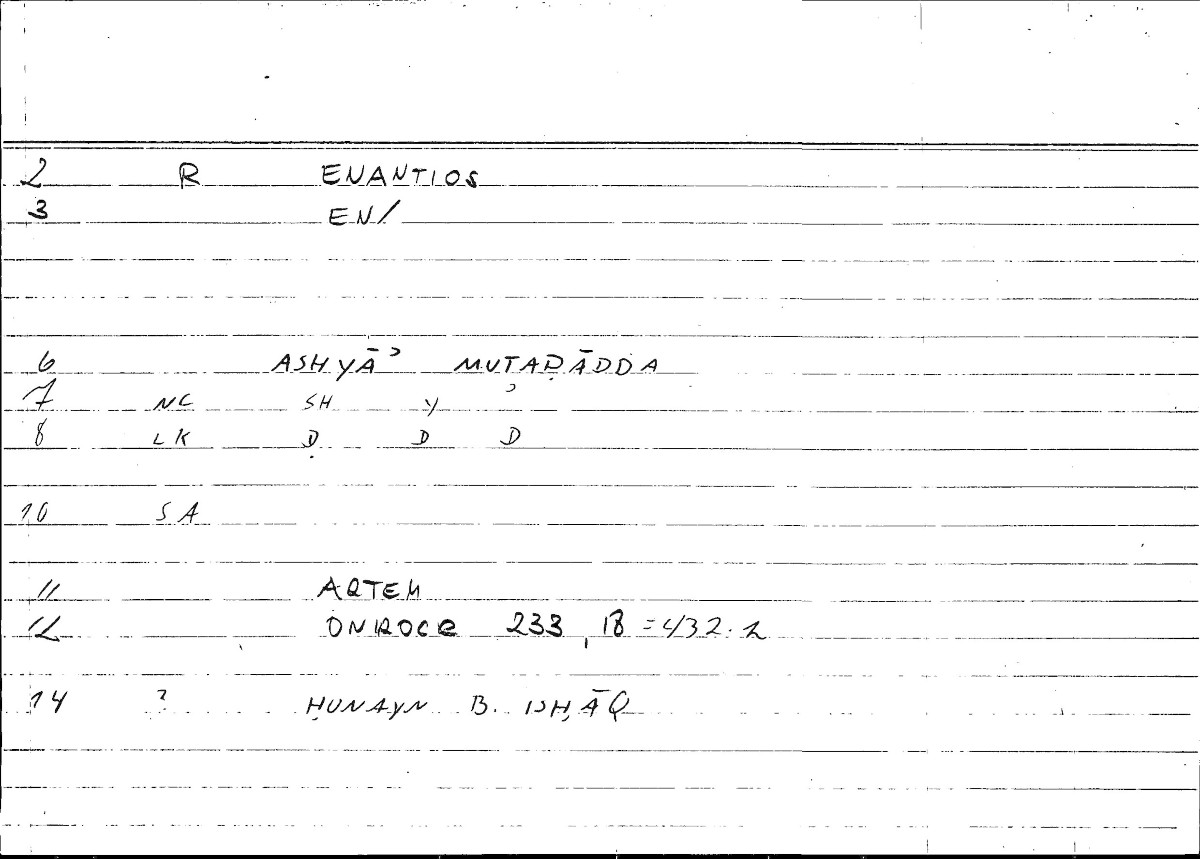 2 R ENANTIOS
3 EN/
6 ASHYĀʾ MUTAḌĀDDA
7 NC SH Y ʾ
8 LK Ḍ D D
10 SA
11 ARTEM
12 ONIROCR 233, 18 = 432. 2
14 ? ḤUNAYN B. ISḤĀQ